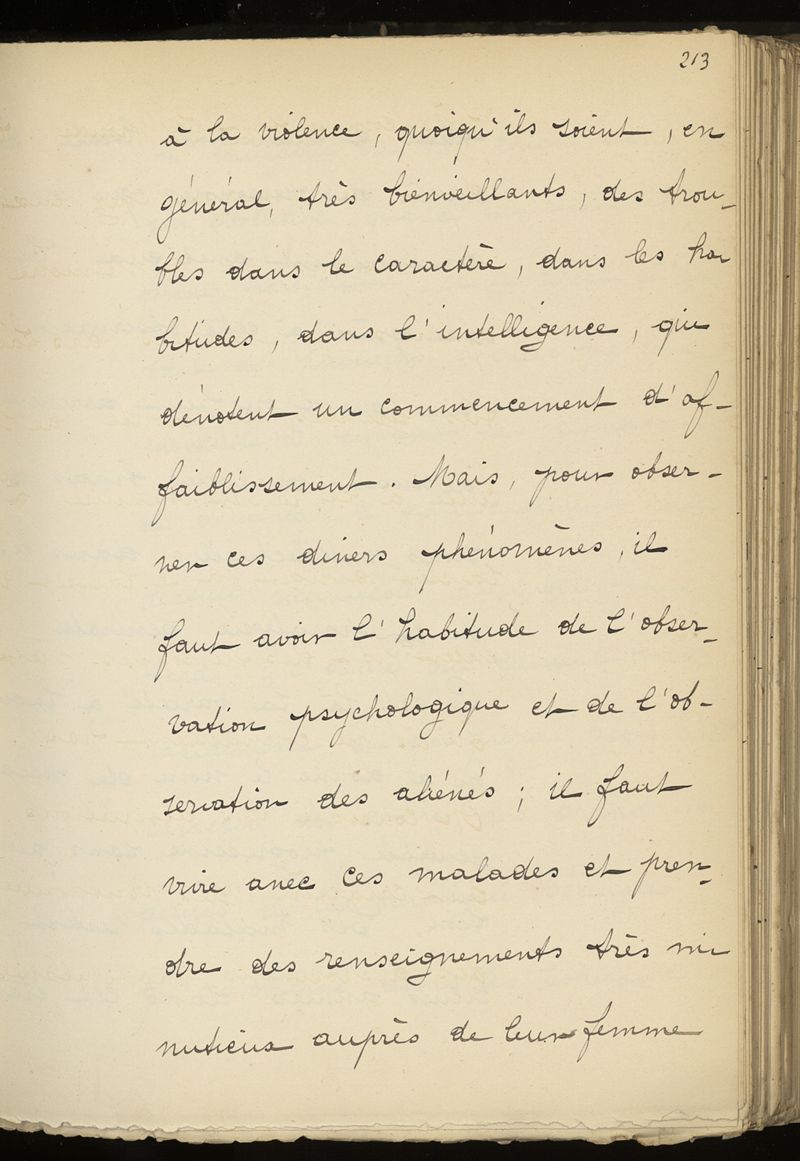 213
à la violence, quoiqu'ils soient, en
général, très bienveillants, des trou-
bles dans le caractère, dans les ha
bitudes, dans l'intelligence, qui
dénotent un commencement d'af-
faiblissement. Mais, pour obser-
ver ces divers phénomènes, il
faut avoir l'habitude de l'obser-
vation psychologique et de l'ob-
servation des aliénés ; il faut
vivre avec ces malades et pren-
dre des renseignements très mi
nutieux auprès de leur femme